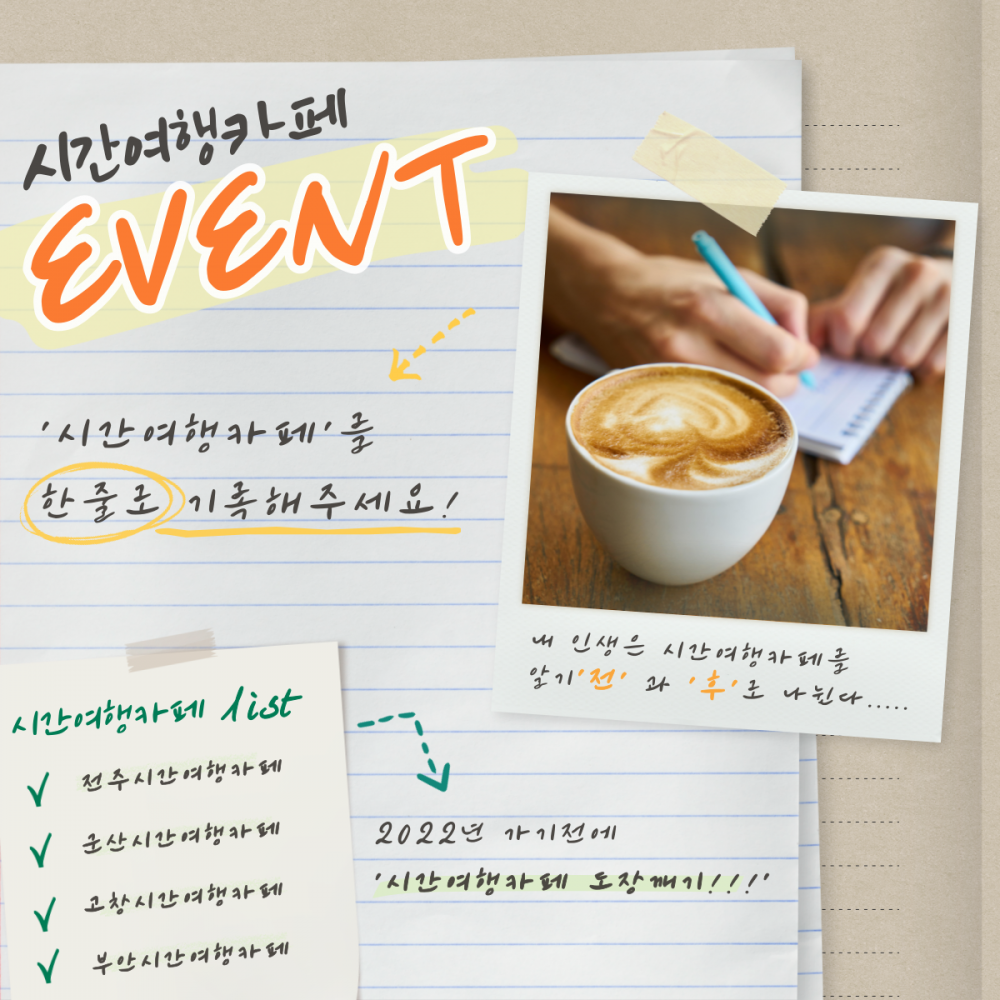 시간여행카페
EVENT
'시간여행카페'를
한줄로 기록해주세요!
내 인생은 시간여행카페를
알기'전' 과 '후'로 나뉜다.....
시간여행카페 list
전주시간여행카페
군산시간여행카페
고창시간여행카페
부안시간여행카페
2022년 가기전에
'시간여행카페 도장깨기!!!'